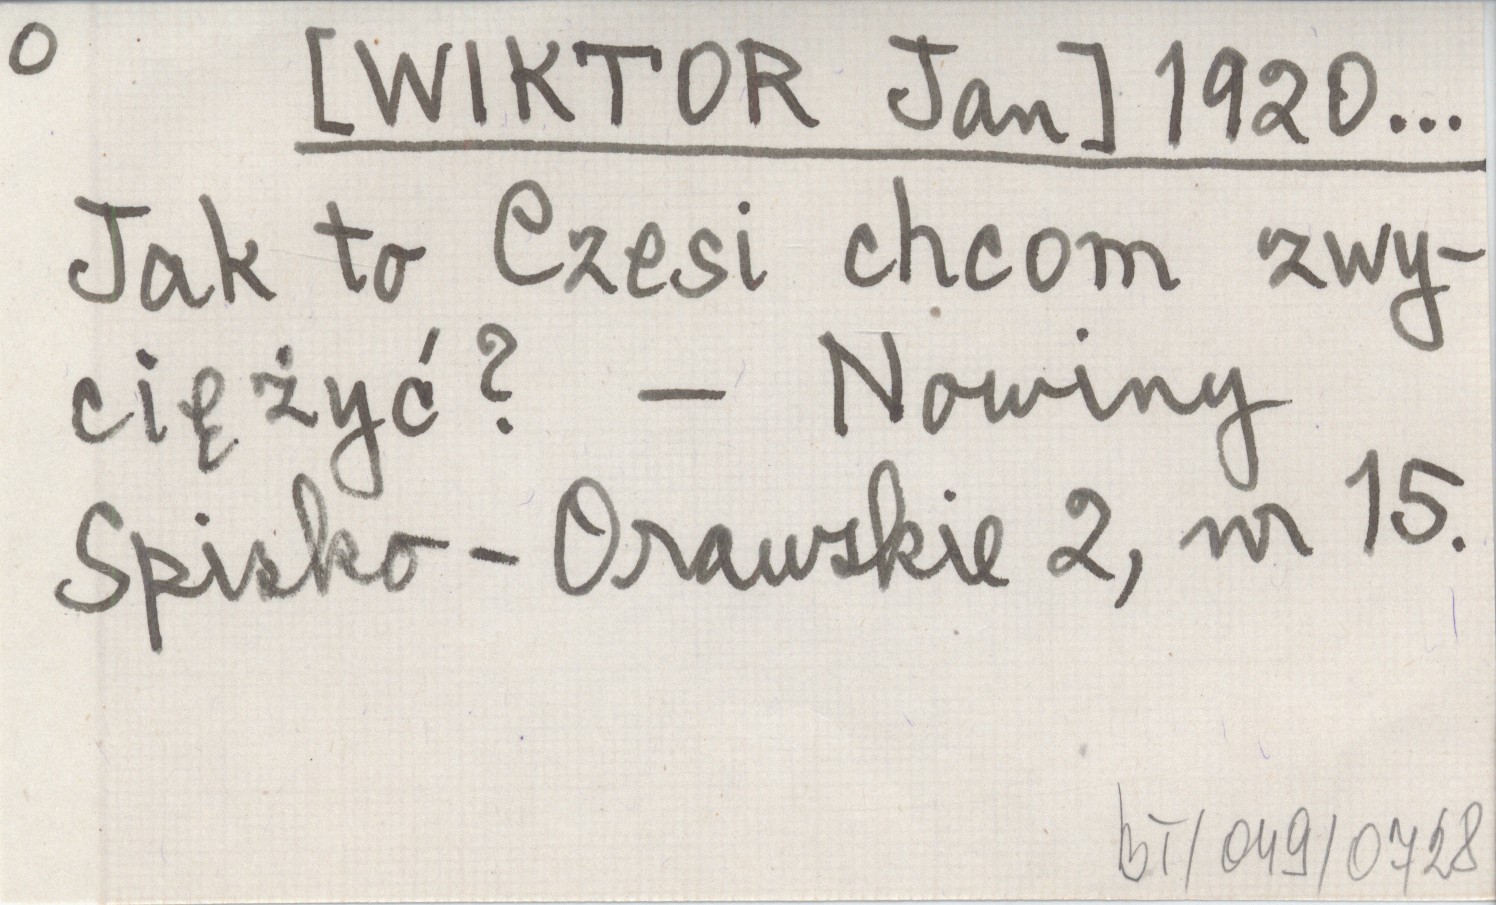 O [WIKTOR Jan] 1920...
Jak to Czesi chcom zwy-
ciężyć? - Nowiny
Spisko-Orawskie 2, nr 15.
bT/049/0728